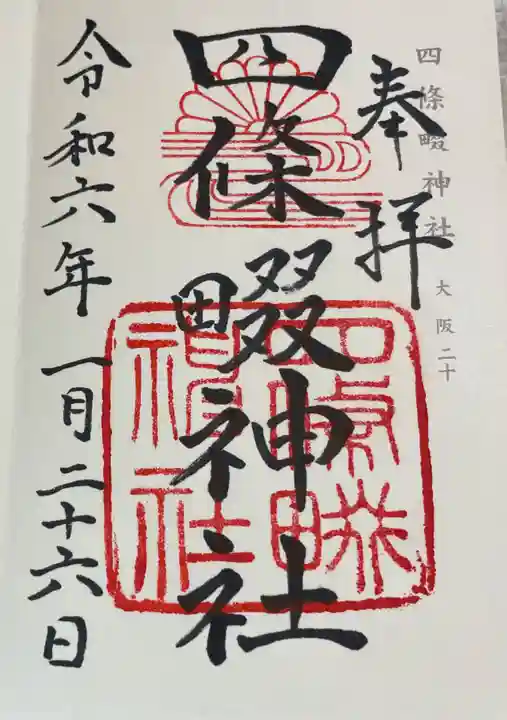 四條畷神社 大阪二十
奉拝
四條畷神社
令和六年一月二十六日
四條畷
神社